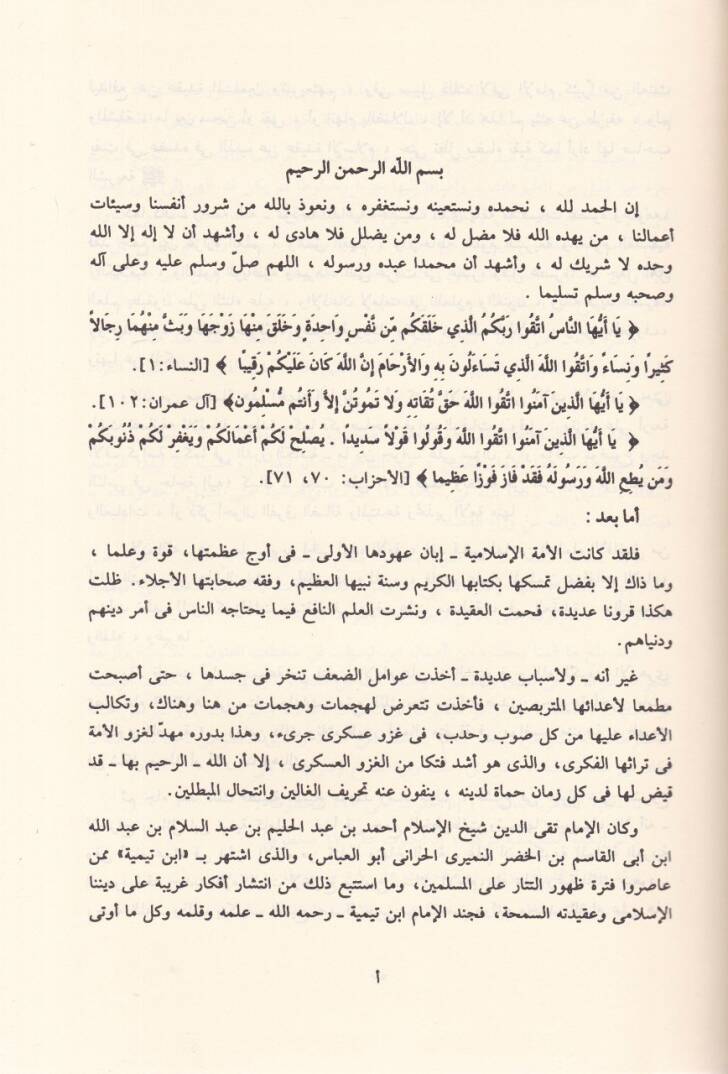 بسم الله الرحمن الرحيم
إن الحمد لله ، نحمده ونستعينه ونستغفره ، ونعوذ بالله من شرور أنفسنا وسيئات
أعمالنا ، من يهده الله فلا مضل له ، ومن يضلل فلا هادى له ، وأشهد أن لا إله إلا الله
وحده لا شريك له ، وأشهد أن محمدا عبده ورسوله ، اللهم صلّ وسلم عليه وعلى آله
وصحبه وسلم تسليما .
﴿ يَا أَيُّهَا النَّاسُ اتَّقُوا رَبَّكُمُ الَّذِي خَلَقَكُم مِّن نَّفْسٍ وَاحِدَةٍ وَخَلَقَ مِنْهَا زَوْجَهَا وَبَثَّ مِنْهُمَا رِجَالاً
كَثِيرًا وَنِسَاءً وَاتَّقُوا اللَّهَ الَّذِي تَسَاءَلُونَ بِهِ وَالأَرْحَامَ إِنَّ اللَّهَ كَانَ عَلَيْكُمْ رَقِيبًا ﴾ [النساء:١].
﴿ يَا أَيُّهَا الَّذِينَ آمَنُوا اتَّقُوا اللَّهَ حَقَّ تُقَاتِهِ وَلا تَمُوتُنَّ إِلاَّ وَأَنتُم مُّسْلِمُون﴾ [آل عمران:١٠٢].
﴿ يَا أَيُّهَا الَّذِينَ آمَنُوا اتَّقُوا اللَّهَ وَقُولُوا قَوْلاً سَدِيدًا . يُصْلِحْ لَكُمْ أَعْمَالَكُمْ وَيَغْفِرْ لَكُمْ ذُنُوبَكُمْ
وَمَن يُطِعِ اللَّهَ وَرَسُولَهُ فَقَدْ فَازَ فَوْزًا عَظِيما ﴾ [الأحزاب: ٧٠، ٧١].
أما بعد :
فلقد كانت الأمة الإسلامية ـ إبان عهودها الأولى ـ فى أوج عظمتها، قوة وعلما ،
وما ذاك إلا بفضل تمسكها بكتابها الكريم وسنة نبيها العظيم، وفقه صحابتها الأجلاء. ظلت
هكذا قرونا عديدة، فحمت العقيدة ، ونشرت العلم النافع فيما يحتاجه الناس فى أمر دينهم
ودنياهم.
غير أنه ـ ولأسباب عديدة ـ أخذت عوامل الضعف تنخر فى جسدها ، حتى أصبحت
مطمعا لأعدائها المتربصين ، فأخذت تتعرض لهجمات وهجمات من هنا وهناك، وتكالب
الأعداء عليها من كل صوب وحدب، فى غزو عسكرى جرىء، وهذا بدوره مهدّ لغزو الأمة
فى تراثها الفكرى، والذى هو أشد فتكا من الغزو العسكرى ، إلا أن الله ـ الرحيم بها ـ قد
قيض لها فى كل زمان حماة لدينه ، ينفون عنه تحريف الغالين وانتحال المبطلين.
وكان الإمام تقى الدين شيخ الإسلام أحمد بن عبد الحليم بن عبد السلام بن عبد الله
ابن أبى القاسم بن الخضر النميرى الحرانى أبو العباس، والذى اشتهر بـ «ابن تيمية» ممن
عاصروا فترة ظهور التتار على المسلمين، وما استتبع ذلك من انتشار أفكار غريبة على ديننا
الإسلامى وعقيدته السمحة، فجند الإمام ابن تيمية ـ رحمه الله ـ علمه وقلمه وكل ما أوتى
أ